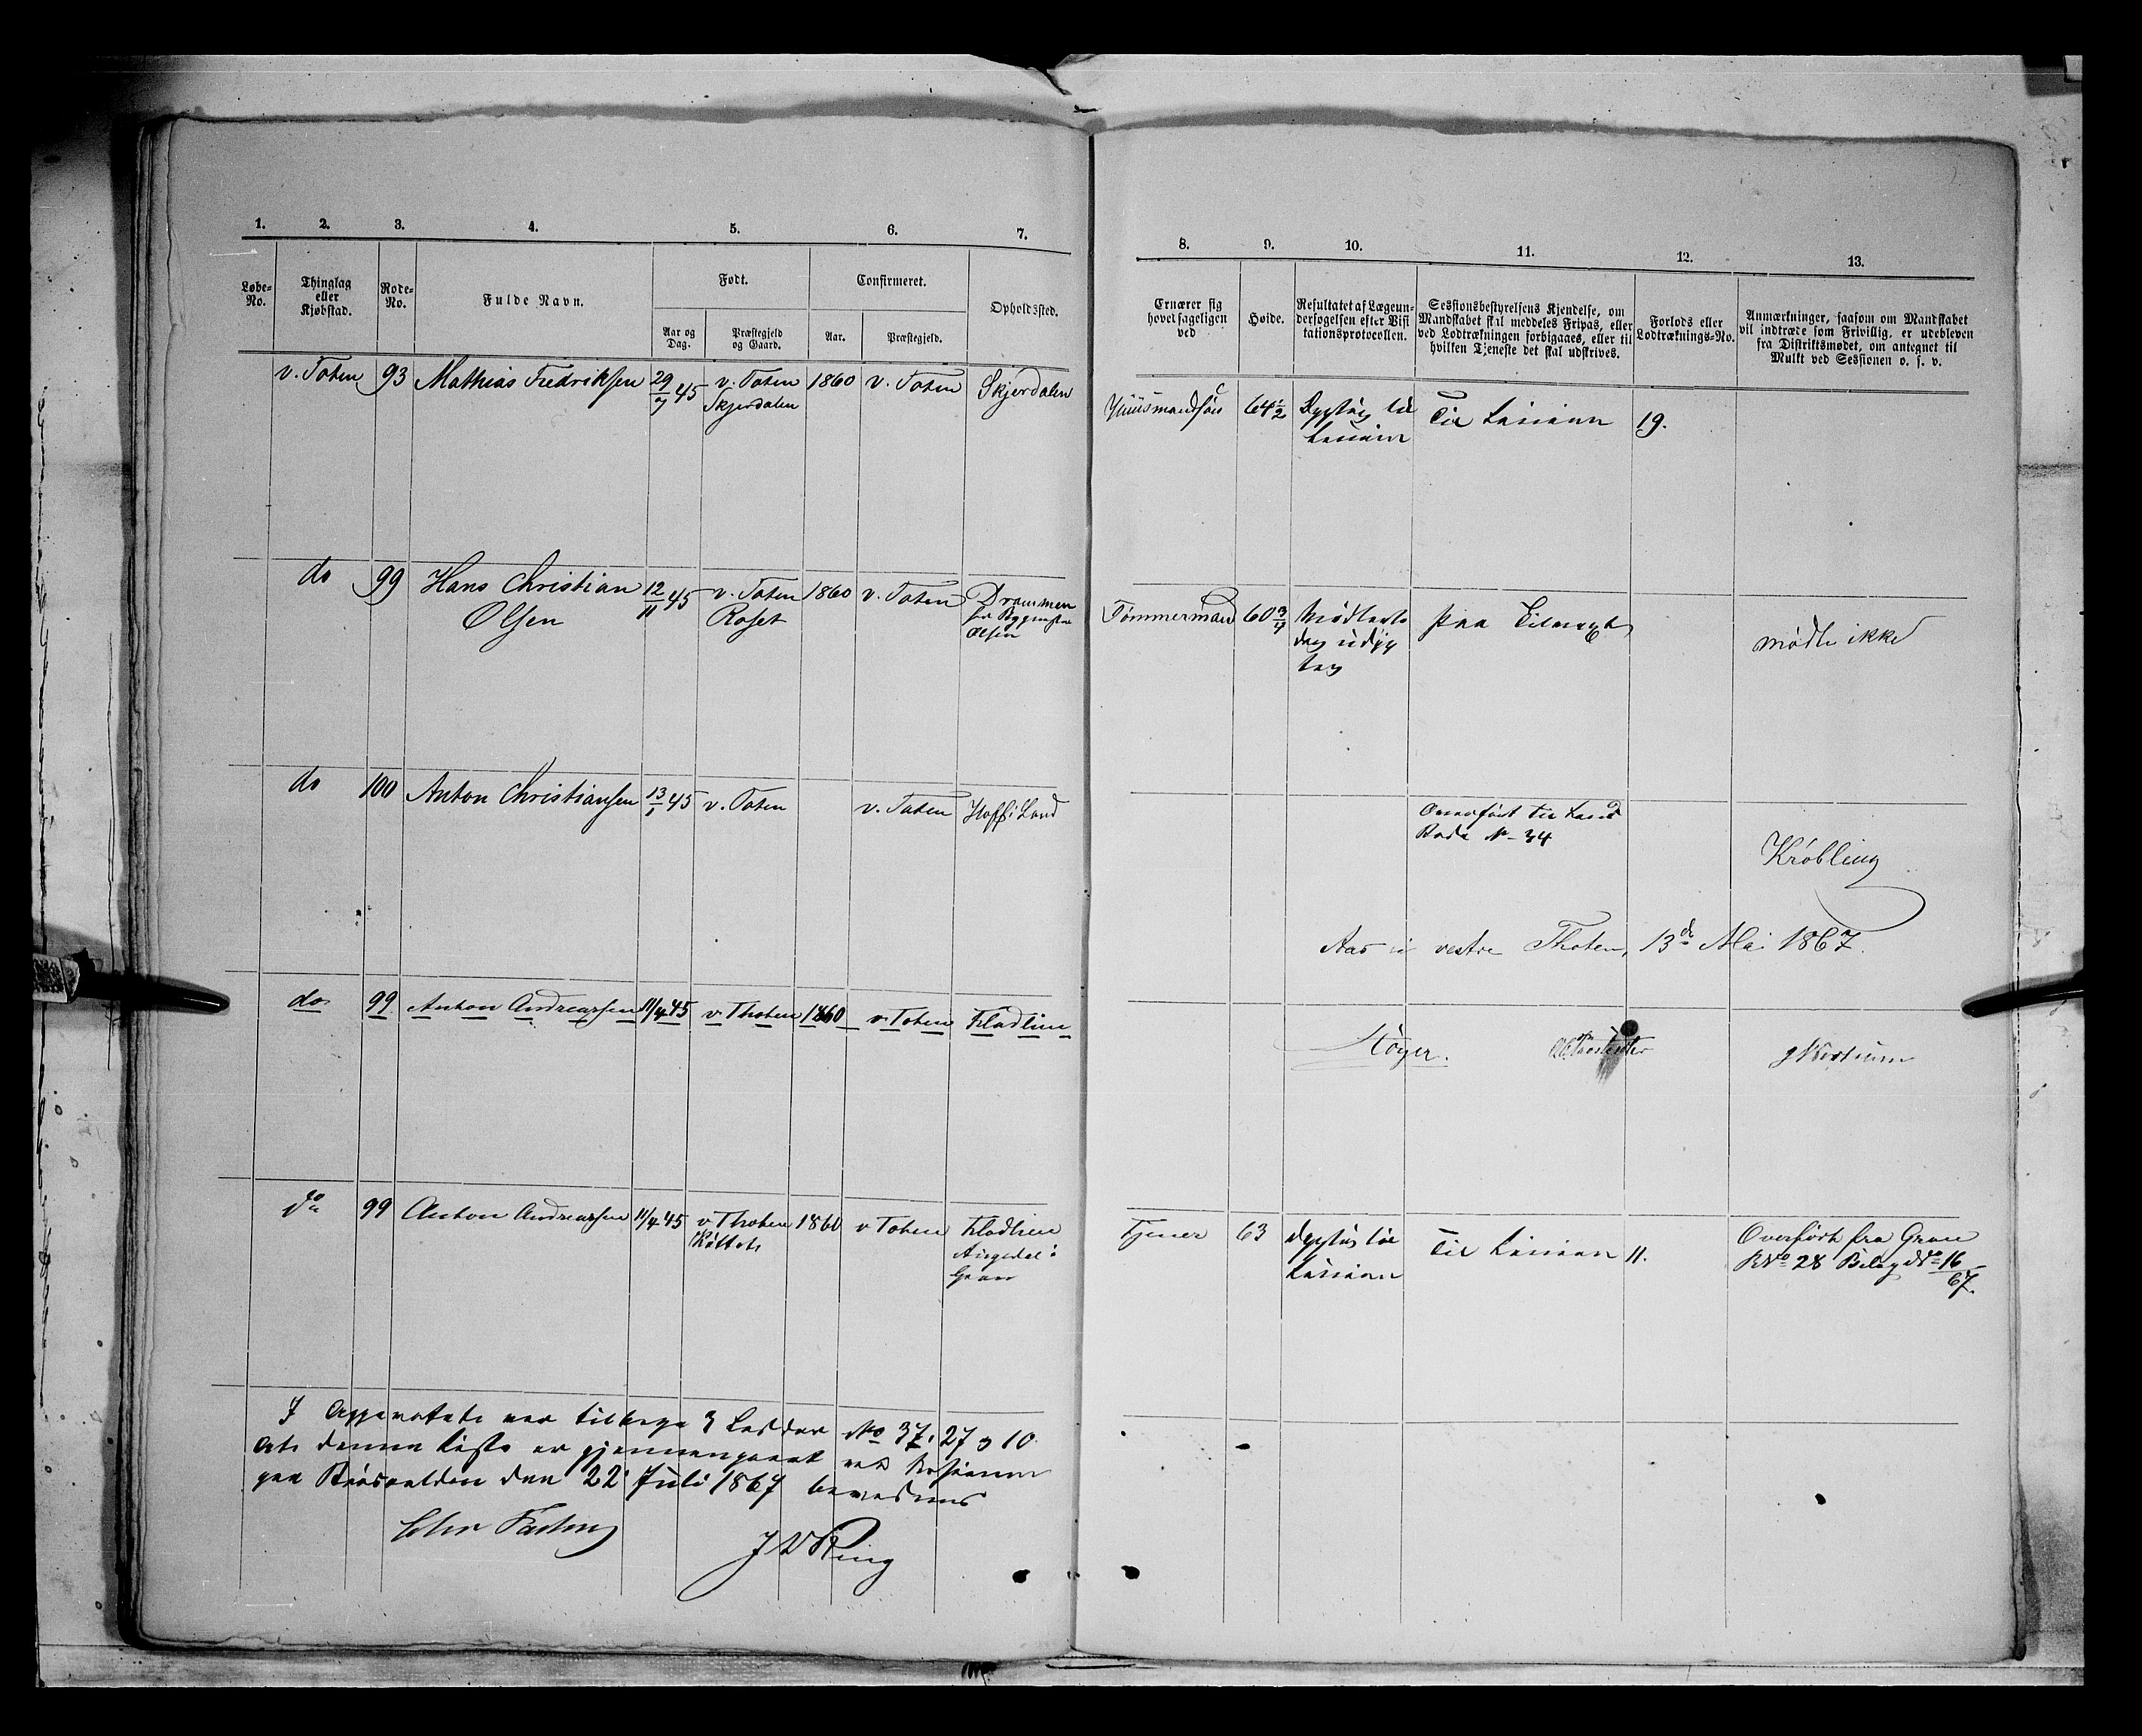 1. 2. 3. 4. 5. 6. 7.
Løbe-No.
Thinglag eller Kjøbstad.
Rode-No.
Fulde Navn.
Født.
Aar og Dag.
Præstegjeld og Gaard.
Confirmeret.
Aar.
Præstegjeld.
Opholdssted.
v. Toten 93 Mathias Fredriksen 29/7 45 v. Toten 1860 v. Toten Skjerdalen
Skjerdalen
do 99 Hans Christian 12/11 45 v. Toten 1860 v. Toten Drammen
Olsen Roset
Olsen
do 100 Anton Christiansen 13/1 45 v. Toten v. Toten Hoff i Land
do 99. Anton Andreassen 11/4 45 v Thoten 1860 v Toten Fladlien
do 99 Anton Andreassen 11/4 45 v Thoten 1860 v Toten Fladlien
Gran
I Apparatet var tilbage 3 Lodder No 37, 27 og 10
At denne Liste er gjennemgaaet ved Sessionen
paa den 22 Juli 1867 bevidnes
J W Ring
8. 9. 10. 11. 12. 13.
Ernærer sig hovedsageligen ved
Høide.
Resultatet af Lægeundersøgelsen efter Visitationsprotocollen.
Sessionsbestyrelsens Kjendelse, om Mandskabet skal meddeles Fripas, eller ved Lodtrækningen forbigaaes, eller til hvilken Tjeneste det skal udskrives.
Forlods eller Lodtræknings-No.
Anmærkninger, saasom om Mandskabet vil indtræde som Frivillig, er udebleven fra Distriktsmødet, om antegnet til Mulkt ved Sessionen o. s. v.
Huusmandssøn 64 1/2 Dygtig til Til Linien 19.
Linien
Tømmermand 60 3/4 paa Tilvæxt mødte ikke
Overført til Land
Rode No 34
Krøbling
Aas i vestre Thoten, 13de Mai 1867.
Tjener 63 dygtig til Til Linien 11. Overført fra Gran
Linien RNo 28 Bilag No 16/67.